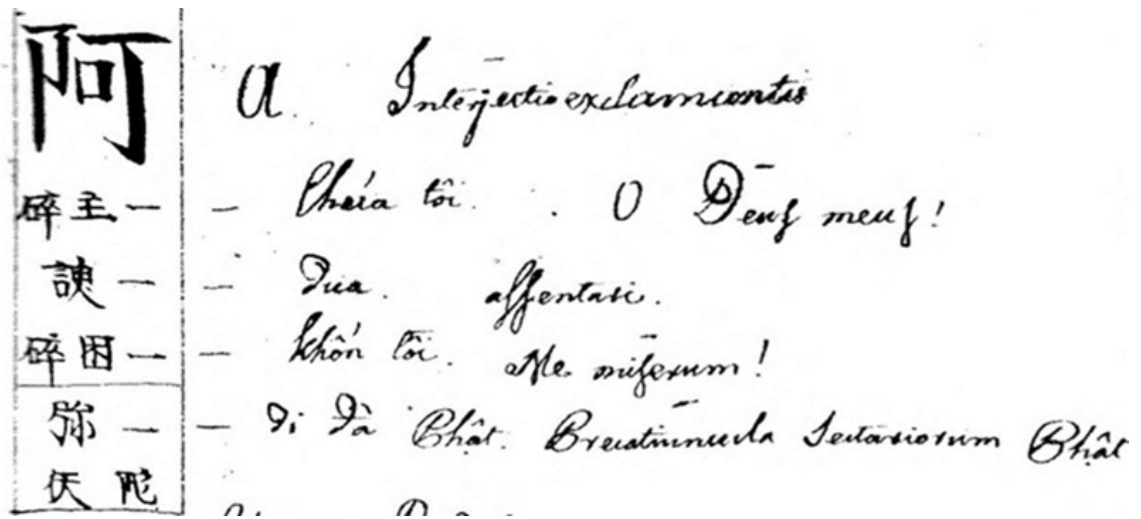 阿 A. Interjectio exclamantis
一主碎 – Chúa tôi. O Deus meus!
一諛 – dua. assentari.
一困碎 – khốn tôi. Me miserum!
一弥 – di đà Phật. Precatiuncula Sectariorum Phật
陀仸